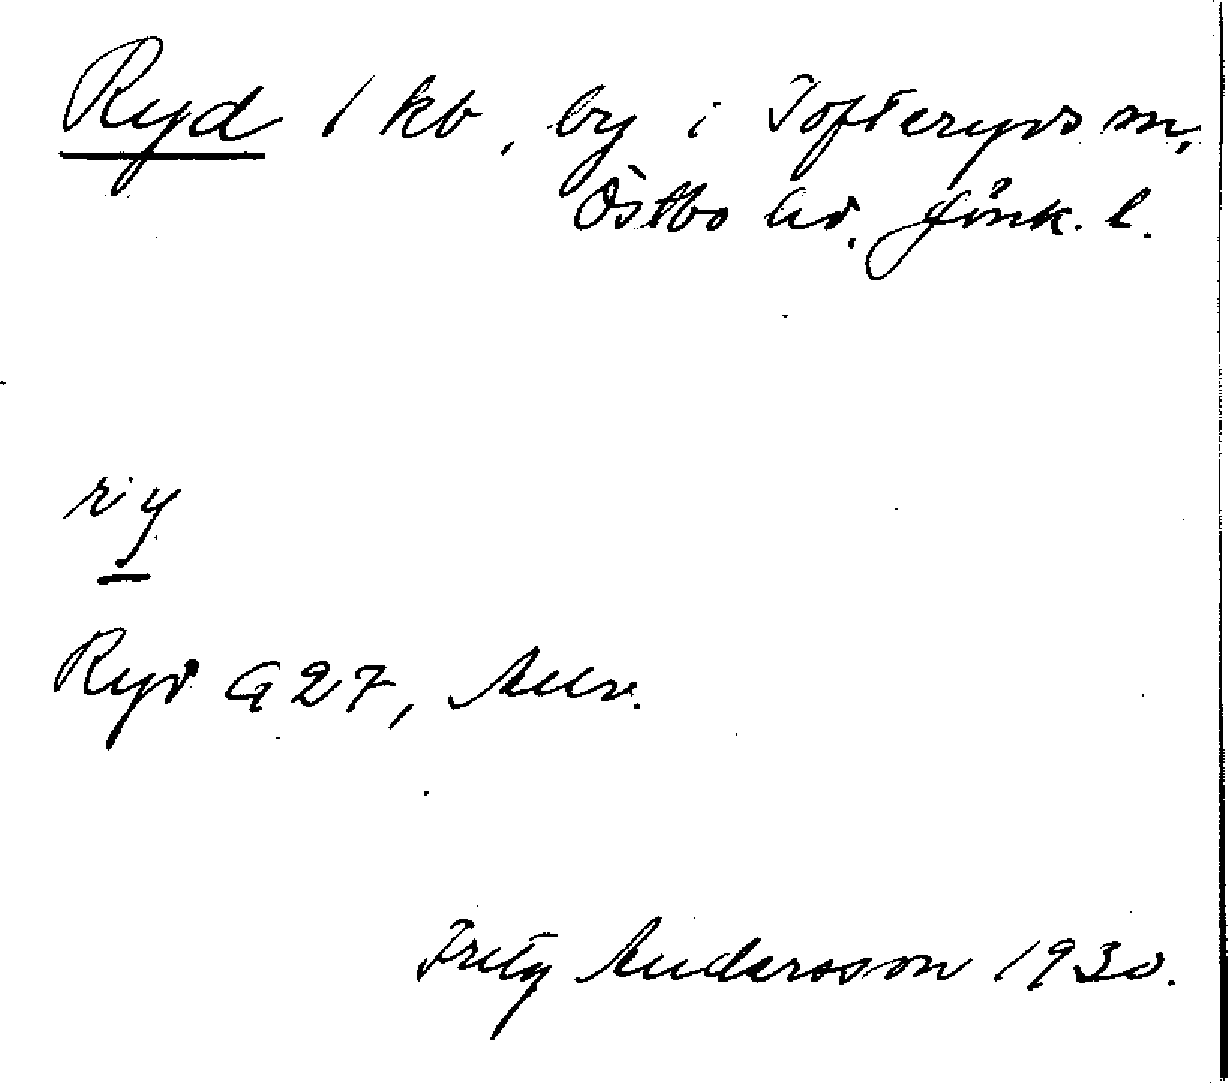 Ryd 1 kb, by i Tofteryds sn,
Östbo hd. Jönk. l.
ry
Ryd G 27,
Fritz Andersson 1930.